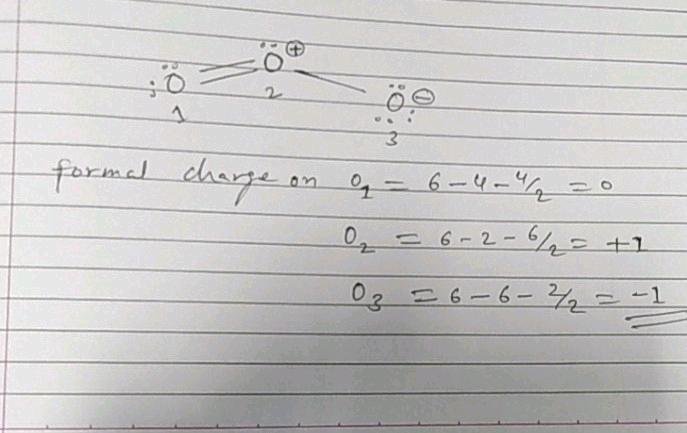 :Ö = Ö⊕ - Ö⊖
1 2 3
formal charge on O₁ = 6 - 4 - 4/2 = 0
O₂ = 6 - 2 - 6/2 = +1
O₃ = 6 - 6 - 2/2 = -1